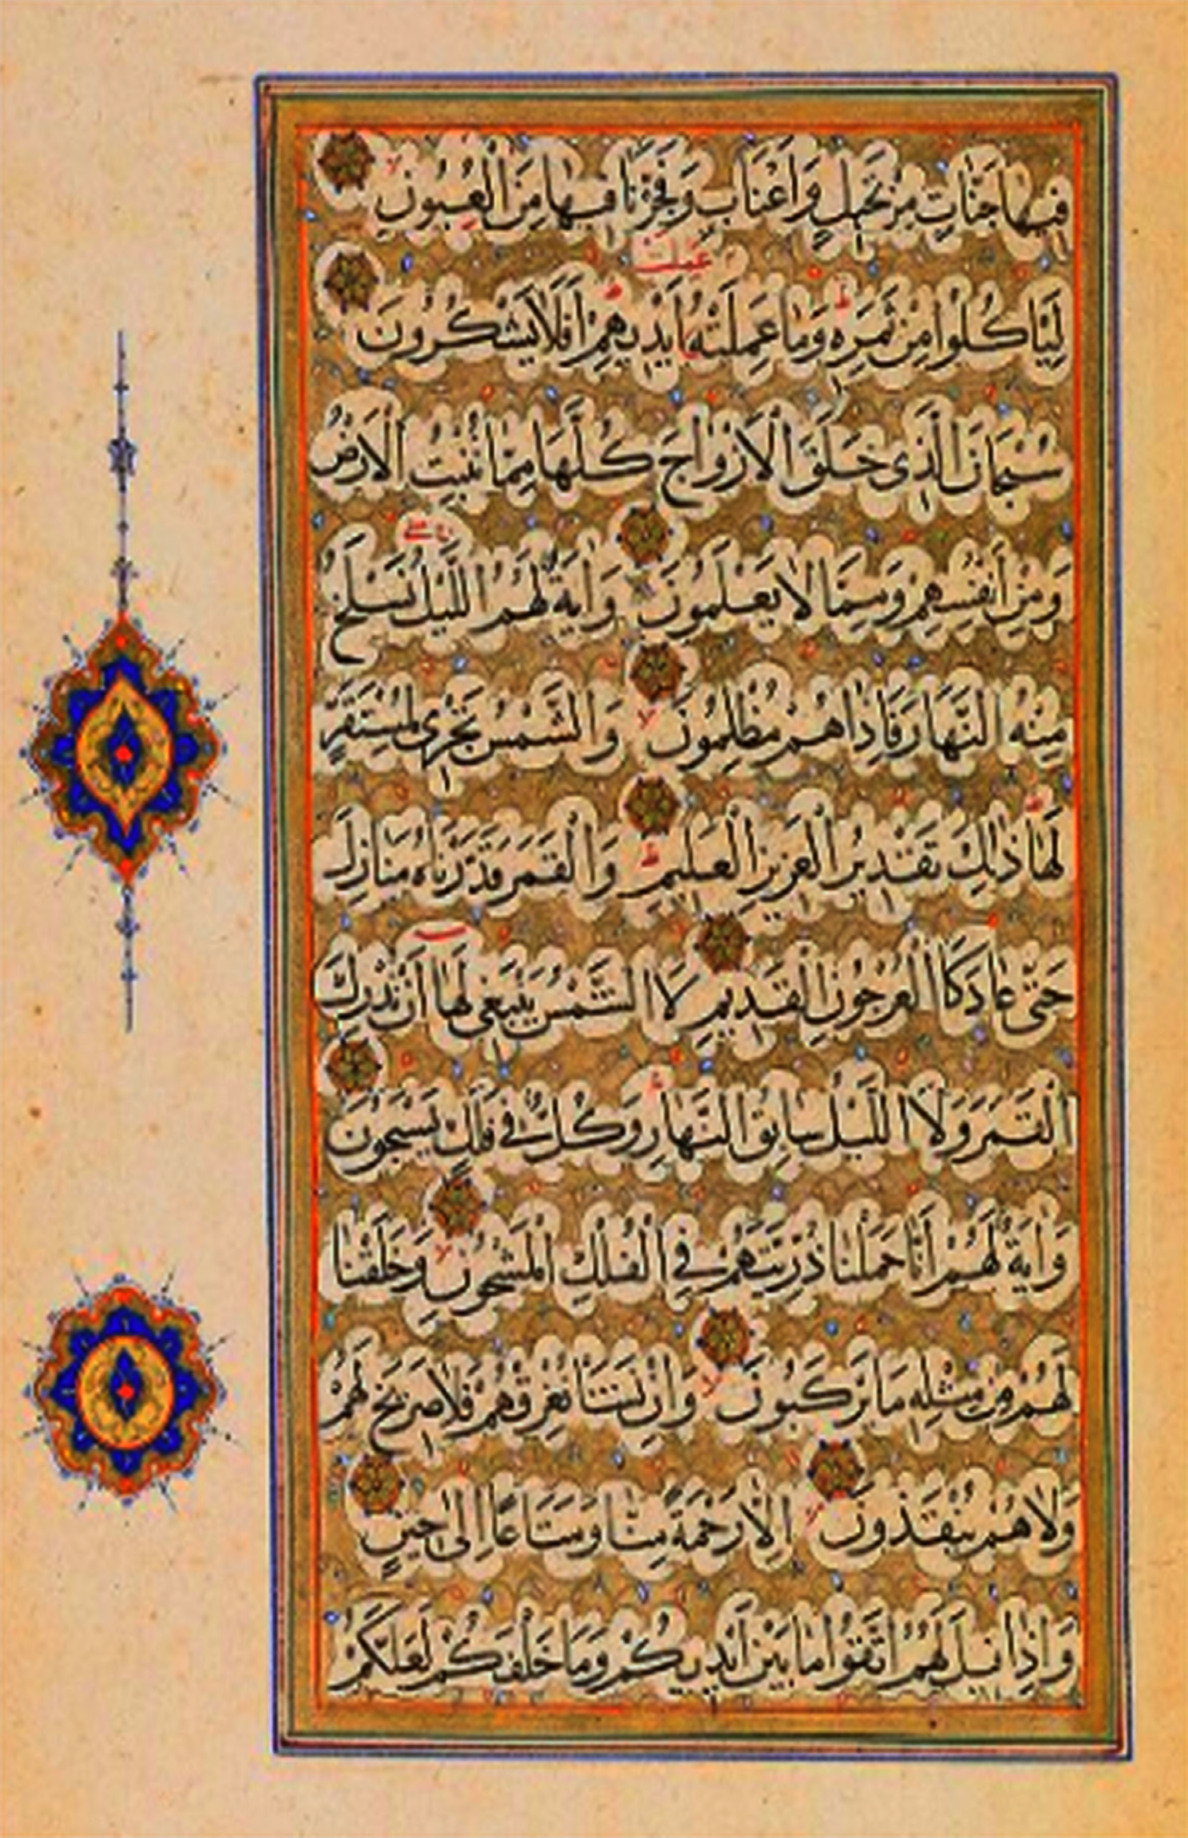 فِيهَا جَنَّاتٍ مِنْ نَخِيلٍ وَاَعْنَابٍ وَفَجَّرْنَا فِيهَا مِنَ الْعُيُونِ
عملت
لِيَاْكُلُوا مِنْ ثَمَرِهِ وَمَا عَمِلَتْهُ اَيْدِيهِمْ اَفَلَا يَشْكُرُونَ
سُبْحَانَ الَّذِى خَلَقَ الْاَزْوَاجَ كُلَّهَا مِمَّا تُنْبِتُ الْاَرْضُ
وَمِنْ اَنْفُسِهِمْ وَمِمَّا لَا يَعْلَمُونَ وَاٰيَةٌ لَهُمُ اللَّيْلُ نَسْلَخُ
مِنْهُ النَّهَارَ فَاِذَا هُمْ مُظْلِمُونَ وَالشَّمْسُ تَجْرِى لِمُسْتَقَرٍّ
لَهَا ذٰلِكَ تَقْدِيرُ الْعَزِيزِ الْعَلِيمِ وَالْقَمَرَ قَدَّرْنَاهُ مَنَازِلَ
حَتّٰى عَادَ كَالْعُرْجُونِ الْقَدِيمِ لَا الشَّمْسُ يَنْبَغِى لَهَا اَنْ تُدْرِكَ
الْقَمَرَ وَلَا اللَّيْلُ سَابِقُ النَّهَارِ وَكُلٌّ فِى فَلَكٍ يَسْبَحُونَ
وَاٰيَةٌ لَهُمْ اَنَّا حَمَلْنَا ذُرِّيَّتَهُمْ فِى الْفُلْكِ الْمَشْحُونِ وَخَلَقْنَا
لَهُمْ مِنْ مِثْلِهِ مَا يَرْكَبُونَ وَاِنْ نَشَاْ نُغْرِقْهُمْ فَلَا صَرِيخَ لَهُمْ
وَلَا هُمْ يُنْقَذُونَ اِلَّا رَحْمَةً مِنَّا وَمَتَاعًا اِلٰى حِينٍ
وَاِذَا قِيلَ لَهُمُ اتَّقُوا مَا بَيْنَ اَيْدِيكُمْ وَمَا خَلْفَكُمْ لَعَلَّكُمْ